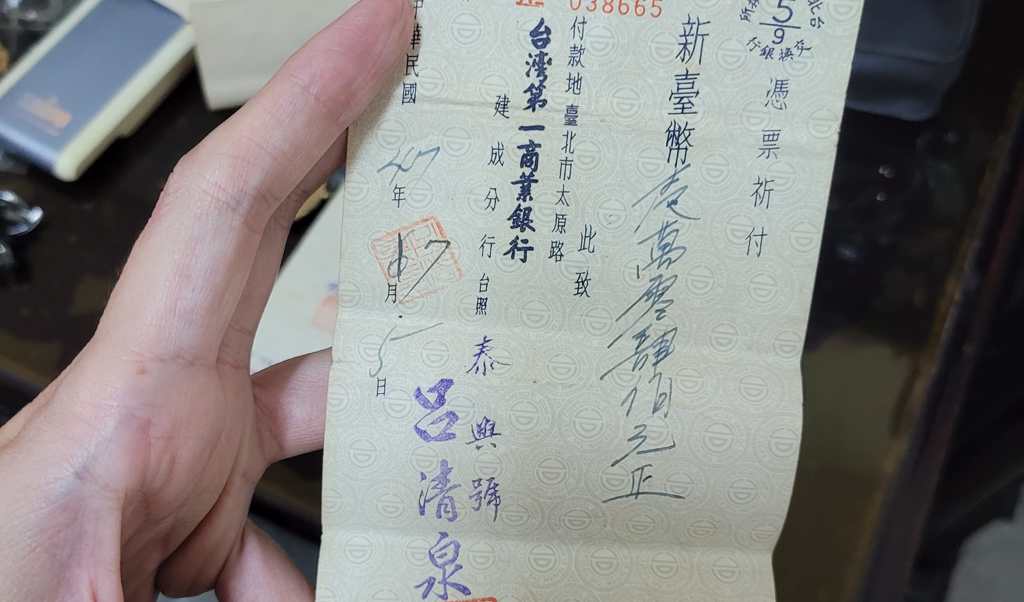 5
9
憑票祈付
新臺幣壹萬零肆佰元正
038665
付款地臺北市太原路
此致
台灣第一商業銀行
建成分行台照
泰興號
呂清泉
中華民國47年7月5日